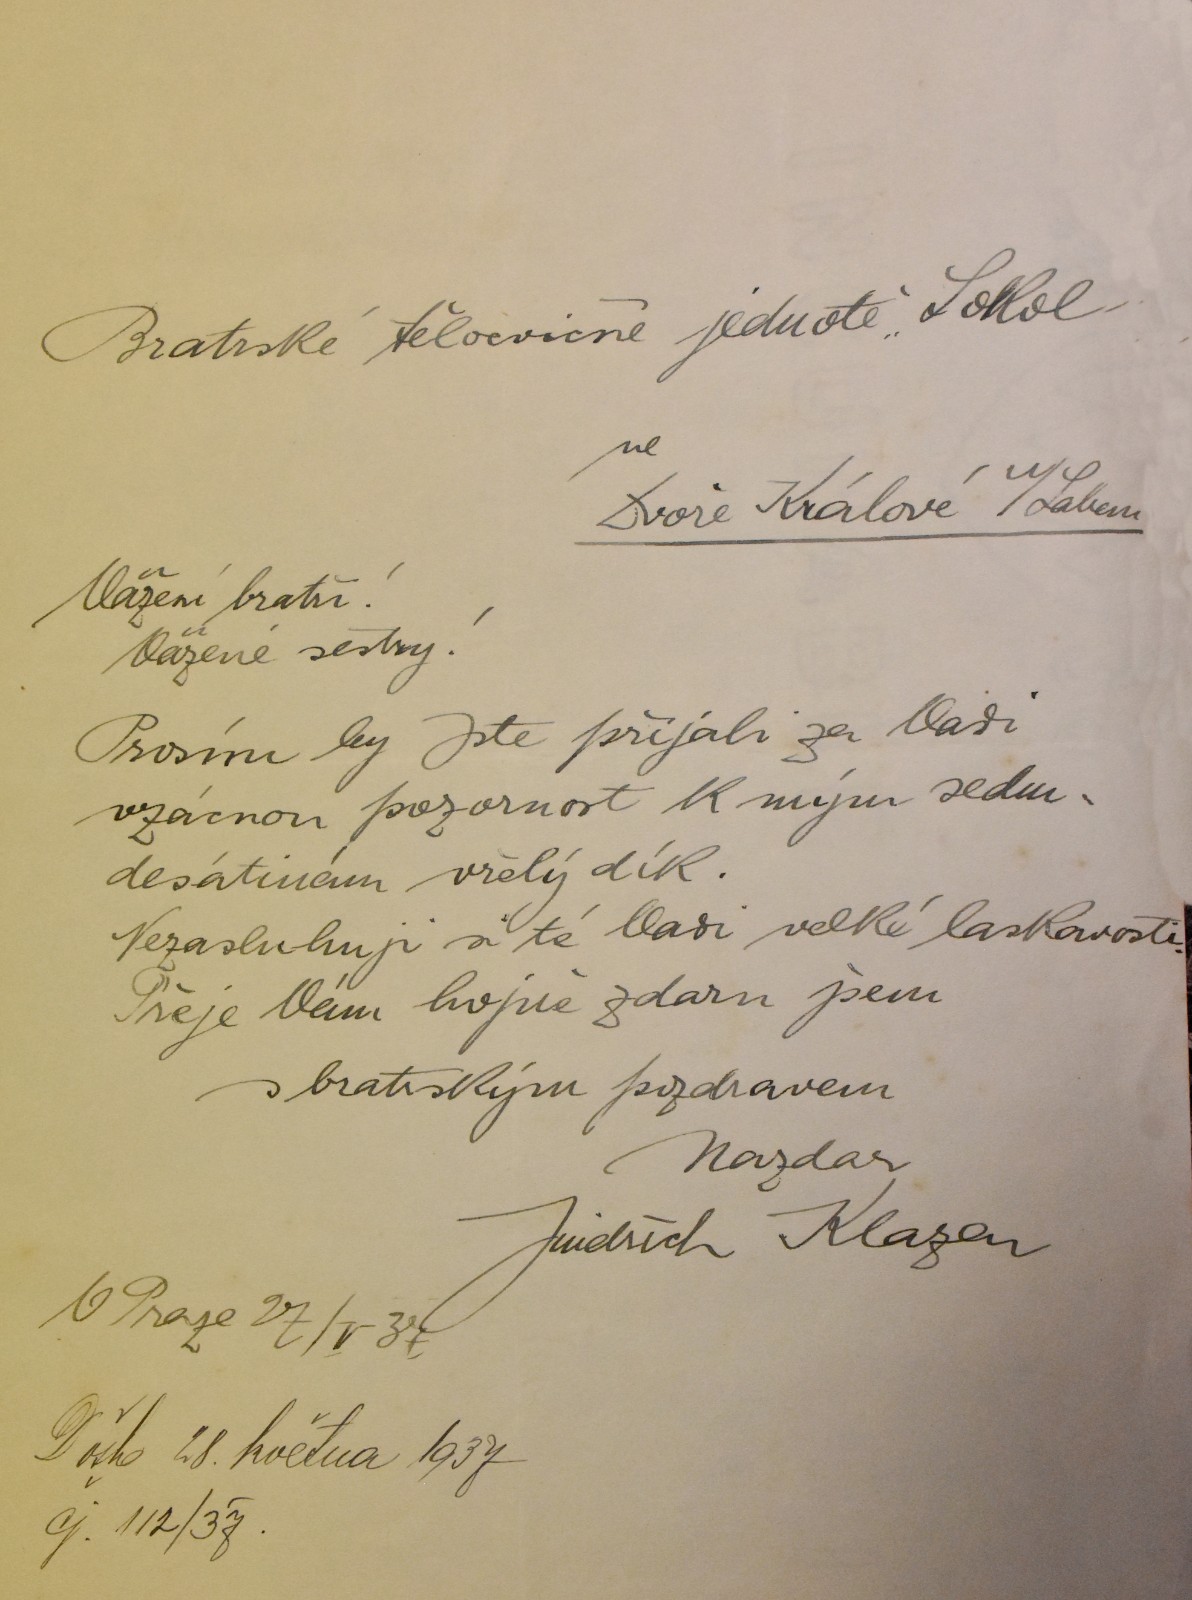 Bratrské tělocvičné jednotě „Sokol
ve
Dvoře Králové n/Labem
Vážení bratří!
Vážené sestry!
Prosím by Jste přijali za Vaši
vzácnou pozornost k mým sedm-
desátinám vřelý dík.
Nezasluhuji si té Vaší velké laskavosti.
Přeje Vám hojně zdaru jsem
s bratrským pozdravem
Nazdar
Jindřich Klazar
V Praze 27/V 37
Došlo 28. května 1937
čj. 112/37.